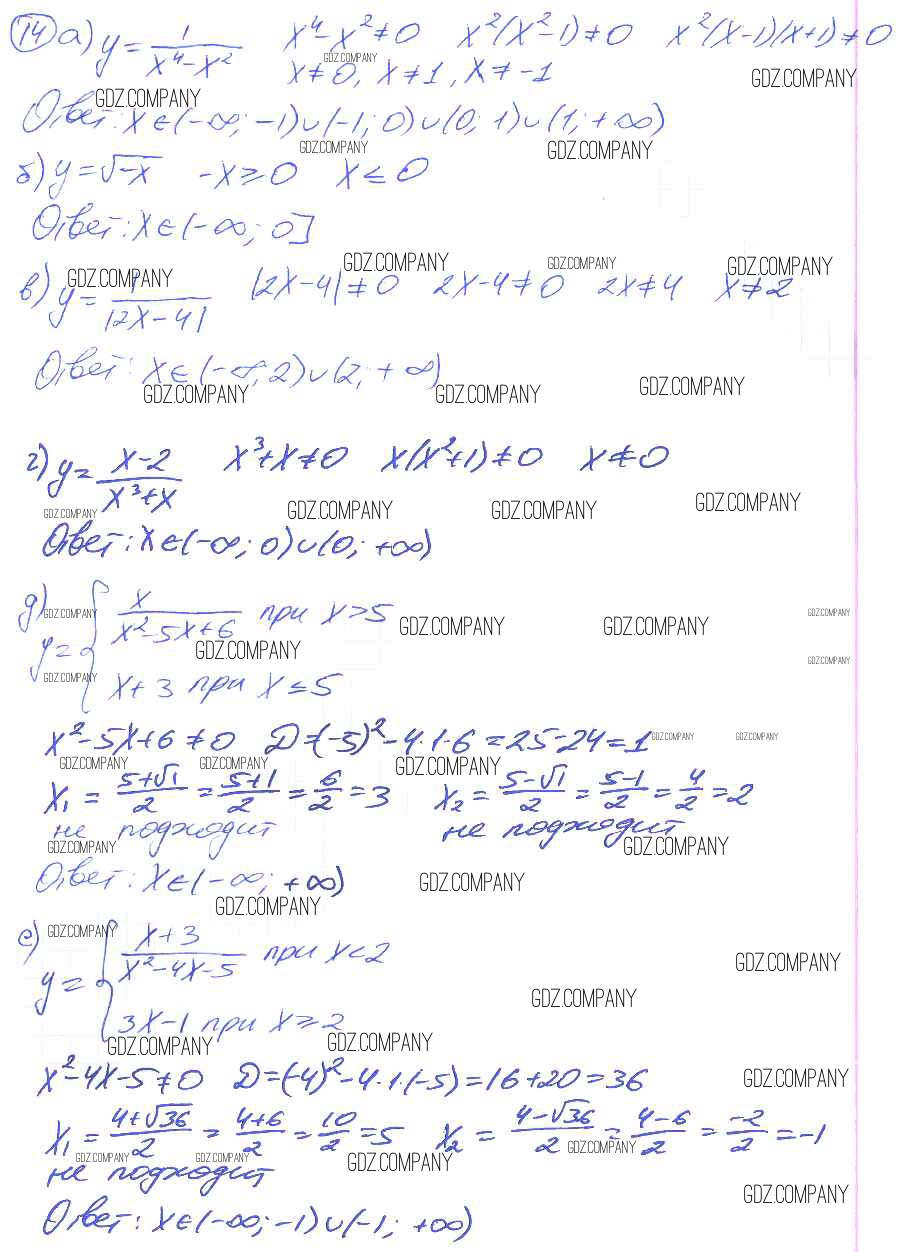 14 а) y = 1/(x⁴-x²)   x⁴-x² ≠ 0   x²(x²-1) ≠ 0   x²(x-1)(x+1) ≠ 0
GDZ.COMPANY
x ≠ 0, x ≠ 1, x ≠ -1   GDZ.COMPANY
GDZ.COMPANY
Ответ: x∈(-∞; -1)∪(-1; 0)∪(0; 1)∪(1; +∞)
GDZ.COMPANY   GDZ.COMPANY
б) y = √-x   -x ≥ 0   x ≤ 0
Ответ: x∈(-∞; 0]
GDZ.COMPANY   GDZ.COMPANY   GDZ.COMPANY   GDZ.COMPANY
в) y = 1/|2x-4|   |2x-4| ≠ 0   2x-4 ≠ 0   2x ≠ 4   x ≠ 2
Ответ: x∈(-∞; 2)∪(2; +∞)
GDZ.COMPANY   GDZ.COMPANY   GDZ.COMPANY
г) y = (x-2)/(x³+x)   x³+x ≠ 0   x(x²+1) ≠ 0   x ≠ 0
GDZ.COMPANY   GDZ.COMPANY   GDZ.COMPANY   GDZ.COMPANY
Ответ: x∈(-∞; 0)∪(0; +∞)
д) y = { x/(x²-5x+6) при x>5
GDZ.COMPANY   GDZ.COMPANY   GDZ.COMPANY   GDZ.COMPANY
GDZ.COMPANY   GDZ.COMPANY
x+3 при x ≤ 5
GDZ.COMPANY
x²-5x+6 ≠ 0   D=(-5)²-4·1·6=25-24=1   GDZ.COMPANY   GDZ.COMPANY
GDZ.COMPANY   GDZ.COMPANY   GDZ.COMPANY
x₁ = (5+√1)/2 = (5+1)/2 = 6/2 = 3   x₂ = (5-√1)/2 = (5-1)/2 = 4/2 = 2
не подходит   не подходит
GDZ.COMPANY   GDZ.COMPANY
Ответ: x∈(-∞; +∞)   GDZ.COMPANY
GDZ.COMPANY
е) y = { (x+3)/(x²-4x-5) при x<2
GDZ.COMPANY   GDZ.COMPANY
GDZ.COMPANY
3x-1 при x ≥ 2
GDZ.COMPANY   GDZ.COMPANY
x²-4x-5 ≠ 0   D=(-4)²-4·1·(-5)=16+20=36   GDZ.COMPANY
x₁ = (4+√36)/2 = (4+6)/2 = 10/2 = 5   x₂ = (4-√36)/2 = (4-6)/2 = -2/2 = -1
GDZ.COMPANY   GDZ.COMPANY   GDZ.COMPANY   GDZ.COMPANY
не подходит
GDZ.COMPANY
Ответ: x∈(-∞; -1)∪(-1; +∞)